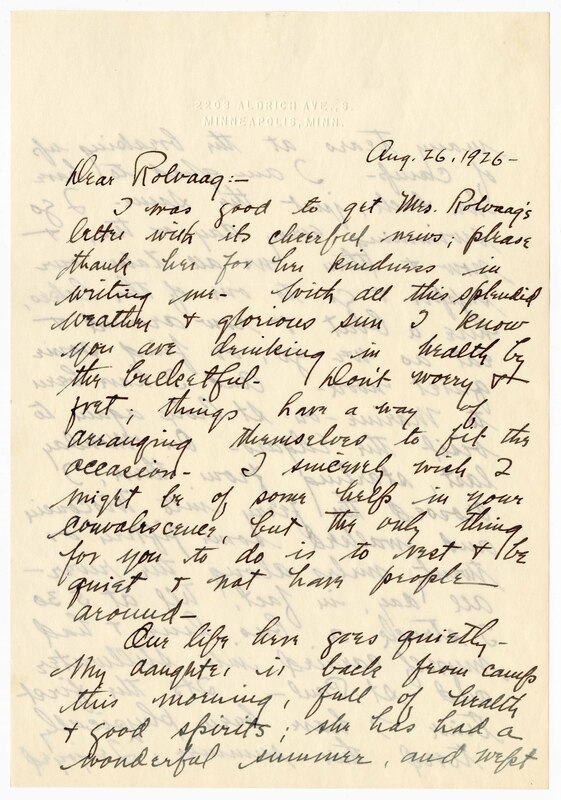 2203 ALDRICH AVE., S.
MINNEAPOLIS, MINN.
Aug. 26, 1926-
Dear Rolvaag:-
I was good to get Mrs. Rolvaag's
letter with its cheerful news; please
thank her for her kindness in
writing me- With all this splendid
weather & glorious sun I know
you are drinking in health by
the bucketful- Don't worry &
fret; things have a way of
arranging themselves to fit the
occasion- I sincerely wish I
might be of some help in your
convalescence, but the only thing
for you to do is to rest & be
quiet & not have people
around-
Our life here goes quietly-
My daughter is back from camp
this morning, full of health
& good spirits; she has had a
wonderful summer, and wept